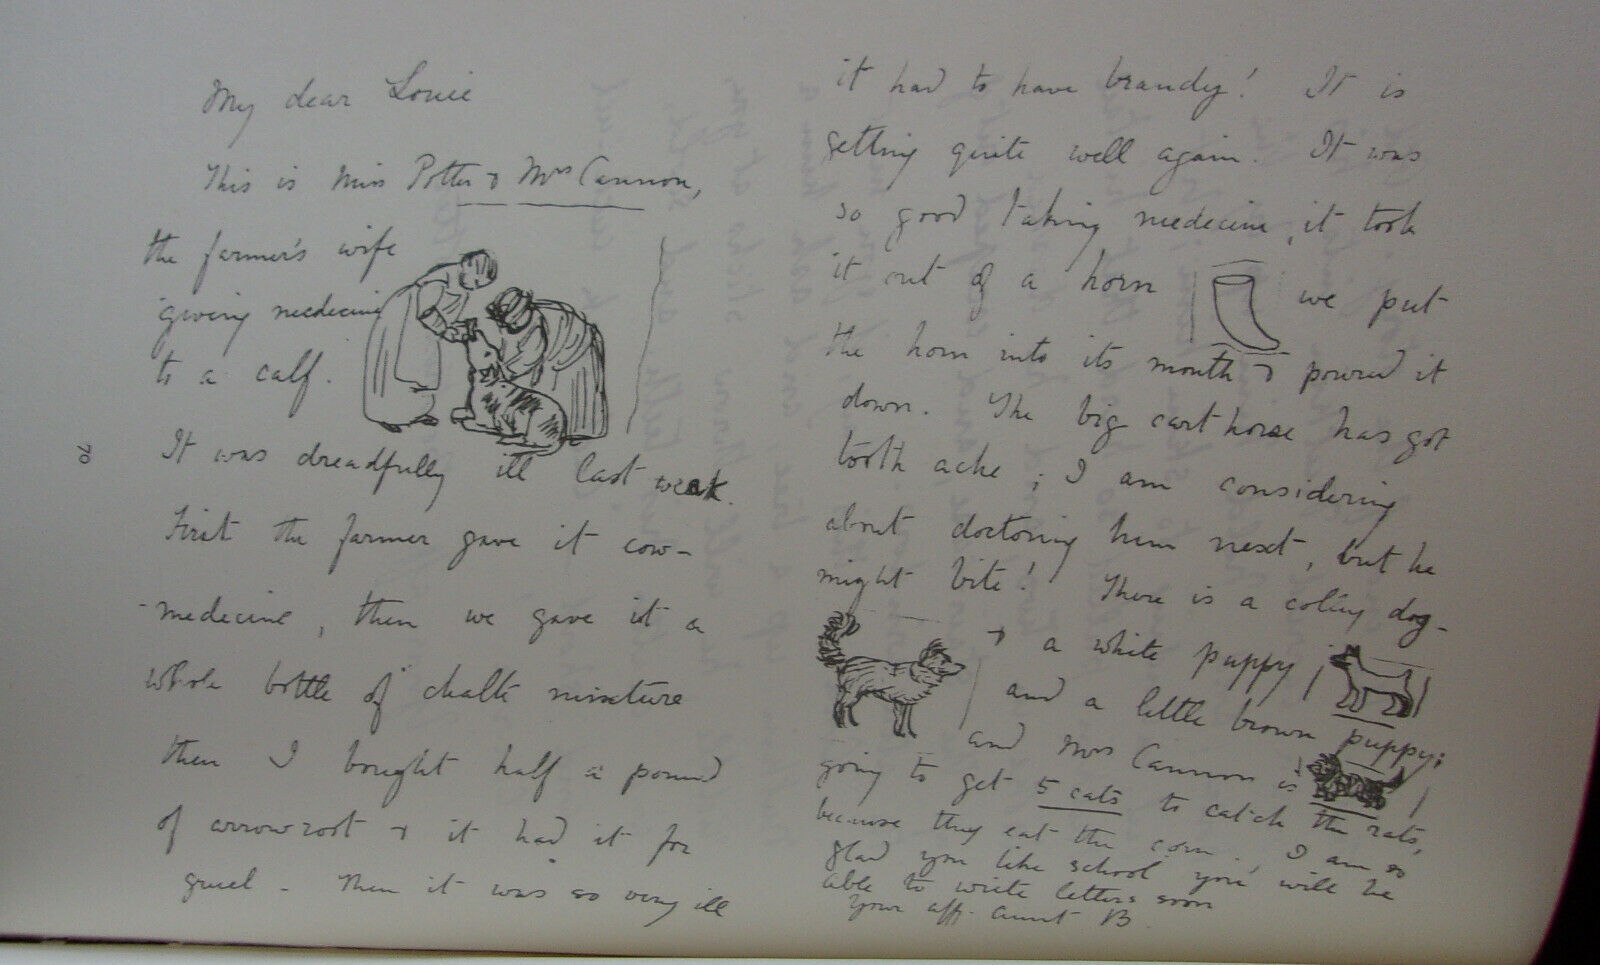 My dear Louie
This is Miss Potter & Mrs Cannon,
the farmer's wife
giving medecine
to a calf.
It was dreadfully ill last weak.
First the farmer gave it cow-
-medecine, then we gave it a
whole bottle of chalk mixture
then I bought half a pound
of arrowroot & it had it for
gruel - Then it was so very ill
70
it had to have brandy! It is
getting quite well again. It was
so good taking medecine, it took
it out of a horn we put
the horn into its mouth & poured it
down. The big cart horse has got
tooth ache; I am considering
about doctoring him next, but he
might bite! There is a colley dog-
& a white puppy
and a little brown puppy;
and Mrs Cannon is
going to get 5 cats to catch the rats,
because they eat the corn. I am so
glad you like school you will be
able to write letters soon
Your aff. aunt B.